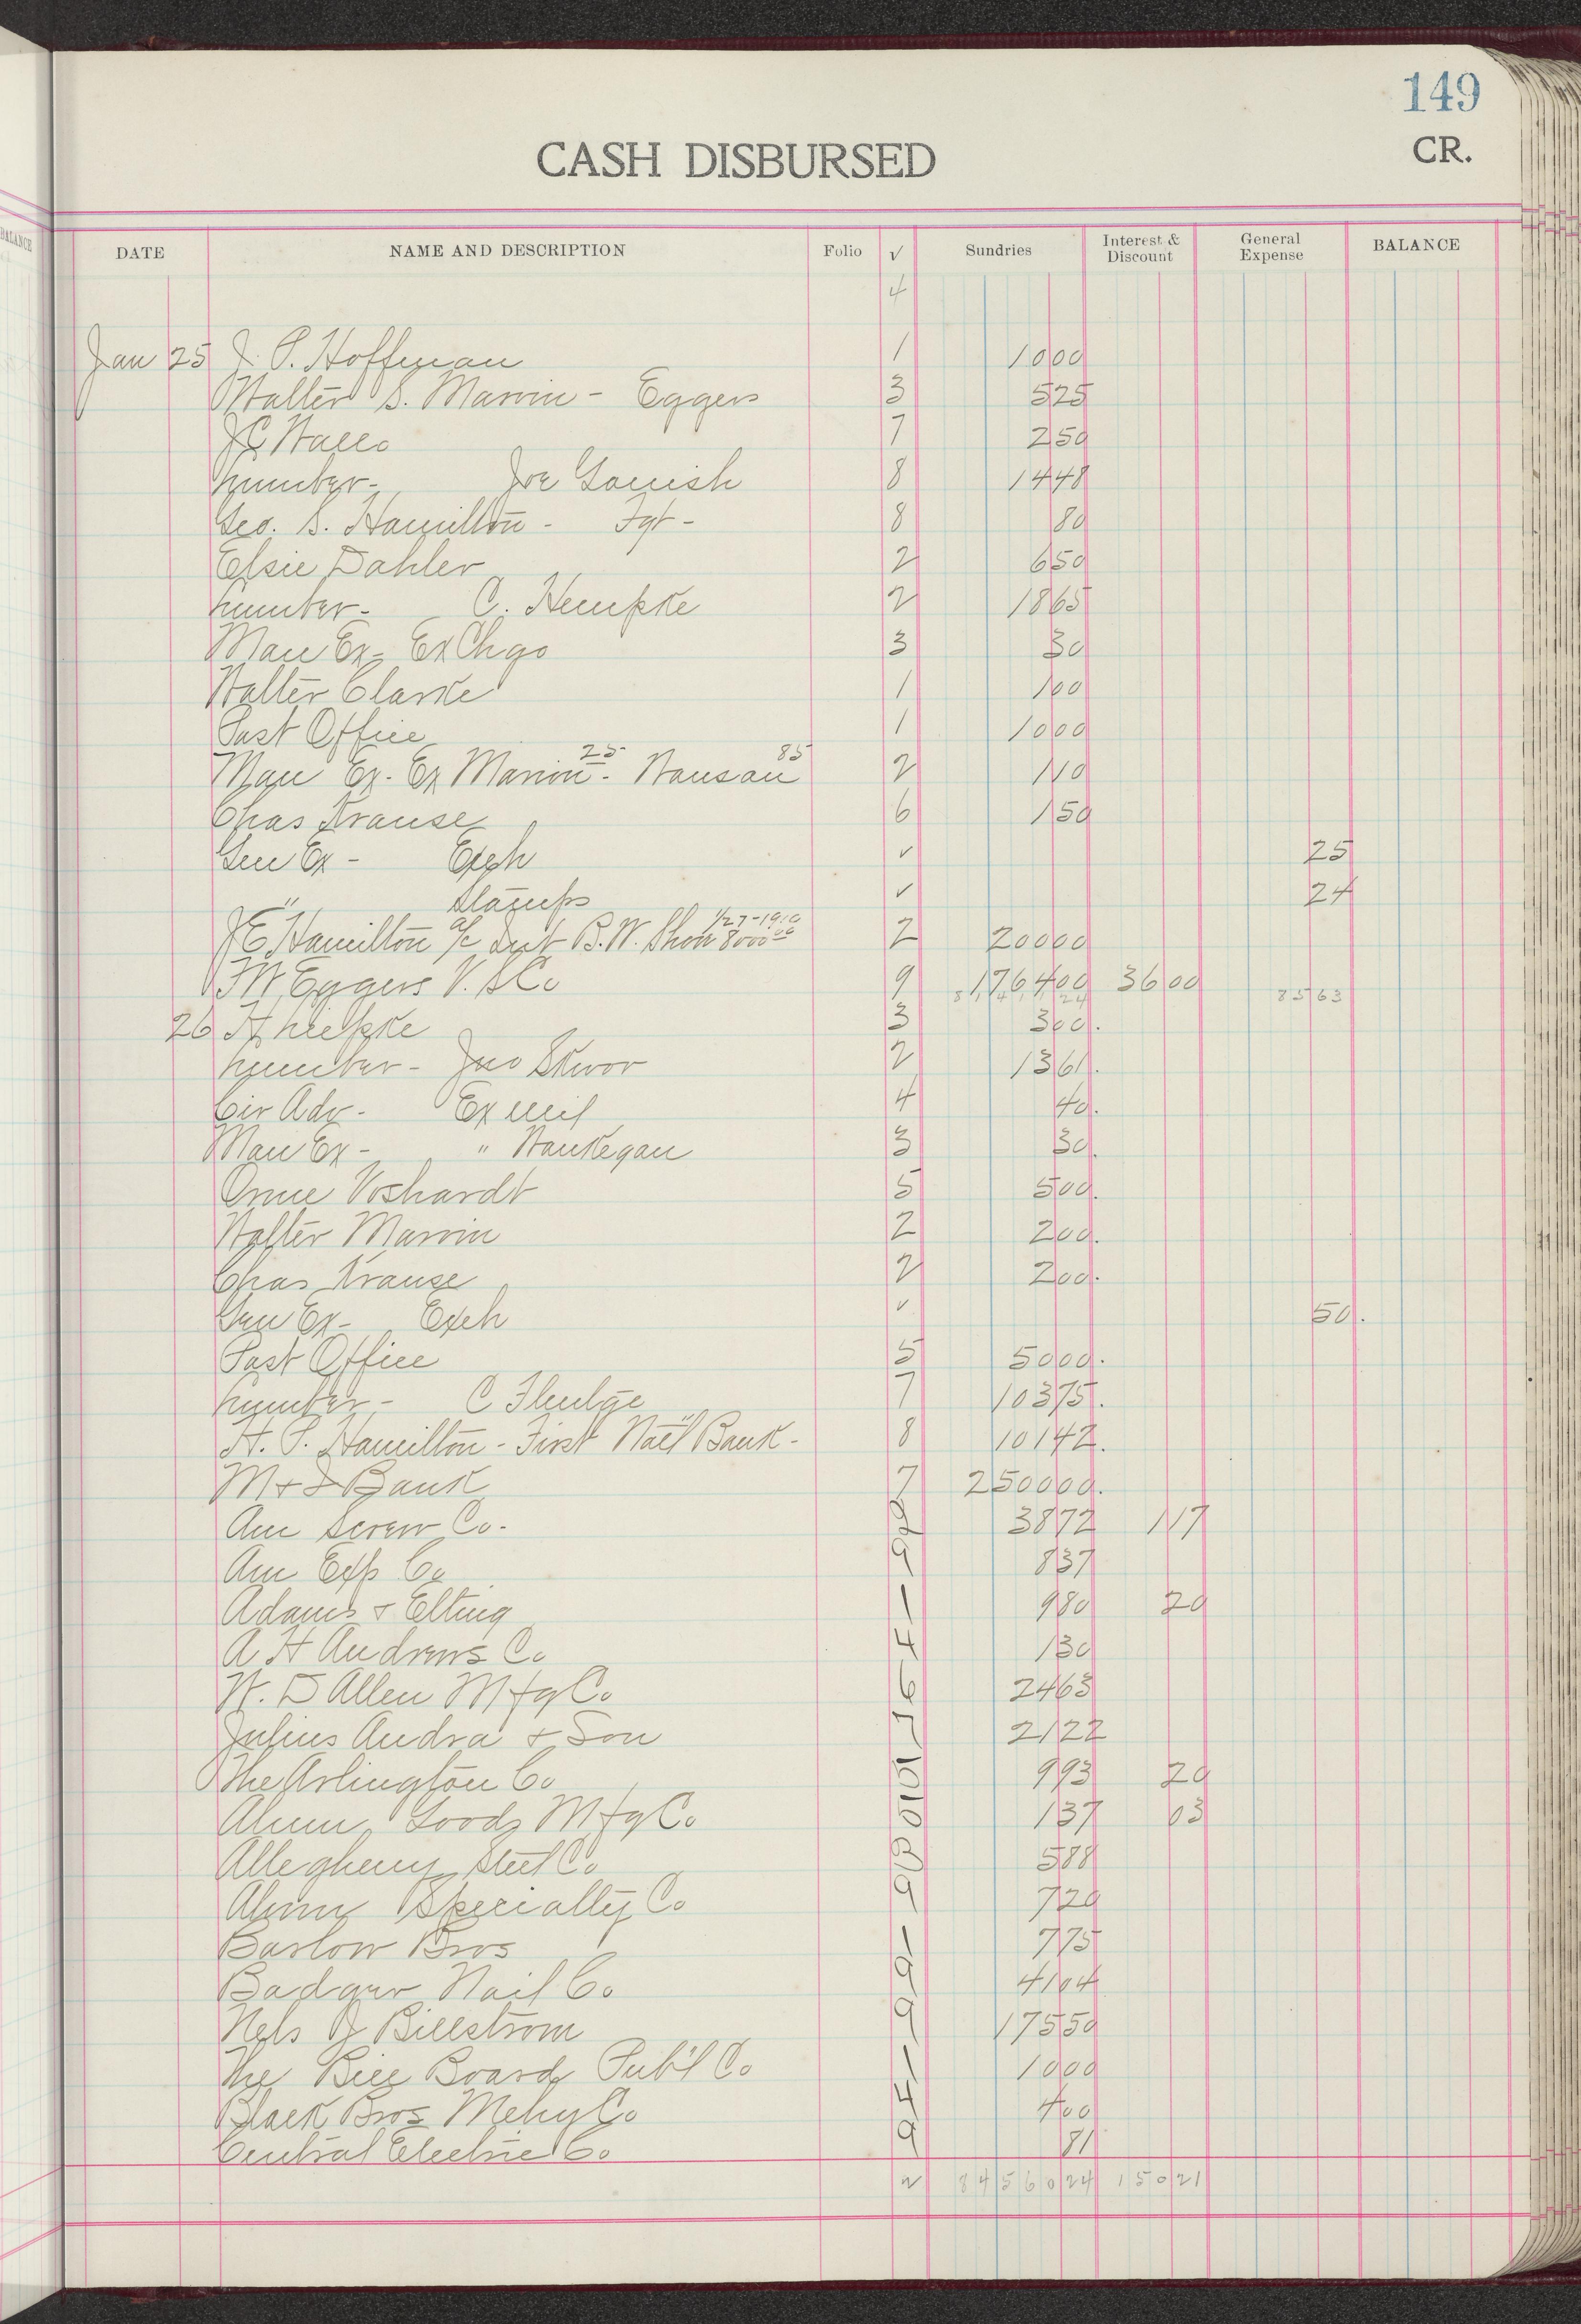 149
CASH DISBURSED
CR.
BALANCE
DATE NAME AND DESCRIPTION Folio √ Sundries Interest & Discount General Expense BALANCE
4
Jan 25 J. P. Hoffman 1 1000
Walter S. Marvin - Eggers 3 525
J C Wallo 7 250
Lumber - Joe 8 1448
Geo. S. Hamilton - Fgt - 8 80
Elsie Dahler 2 650
Lumber - C. Hempke 2 1865
Man Ex - Ex Chgo 3 30
Walter Clarke 1 100
Post Office 1 1000
Man Ex - Ex Marion 25 - Wausau 85 2 110
Chas Krause 6 150
Gen Ex - Exch √ 25
" Stamps √ 24
J E Hamilton a/c Int B. W. 1/27-1910 8000 00 2 20000
F W Eggers V. S Co 9 176400 3600
8563
26 H Liepke 3 300.
Lumber - Jno Skwor 2 1361.
Cir Adv - Ex Mil 4 40.
Man Ex - " Waukegan 3 30.
Orme Voshardt 5 500.
Walter Marvin 2 200.
Chas Krause 2 200.
Gen Ex - Exch √ 50.
Post Office 5 5000.
Lumber - C 7 10375.
H. P. Hamilton - First Nat'l Bank - 8 10142.
M + I Bank 7 250000.
Am Screw Co. 3872 117
Am Exp Co 9 837
Adams & Elting 1 980 20
A H Andrews Co 4 130
W. D Allen Mfg Co 2463
Julius Andra & Son 2122
The Arlington Co 993 20
Alum Goods Mfg Co 137 03
Allegheny Steel Co 588
Alum Specialty Co 9 720
Barlow Bros 1 775
Badger Nail Co 9 4104
Nels J Billstrom 9 17550
The Bill Board Pub'l Co 1 1000
Black Bros Mchy Co 4 400
Central Electric Co 9 81
2 8456024 15021